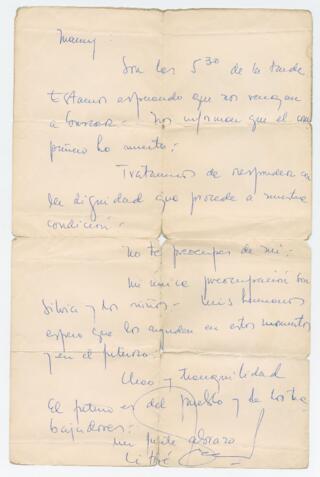 Mamy:
Son las 5³⁰ de la tarde
Estamos esperando que nos vengan
a buscar - Nos informan que el com
pañero ha muerto:
Trataremos de responder con
la dignidad que procede a nuestra
condición:
No te preocupes de mi:
Mi única preocupación son
Silvia y los niños - Mis hermanos
espero que los ayuden en estos momentos
y en el futuro -
Chao y tranquilidad
El futuro es del pueblo y de los tra
bajadores:
un fuerte abrazo